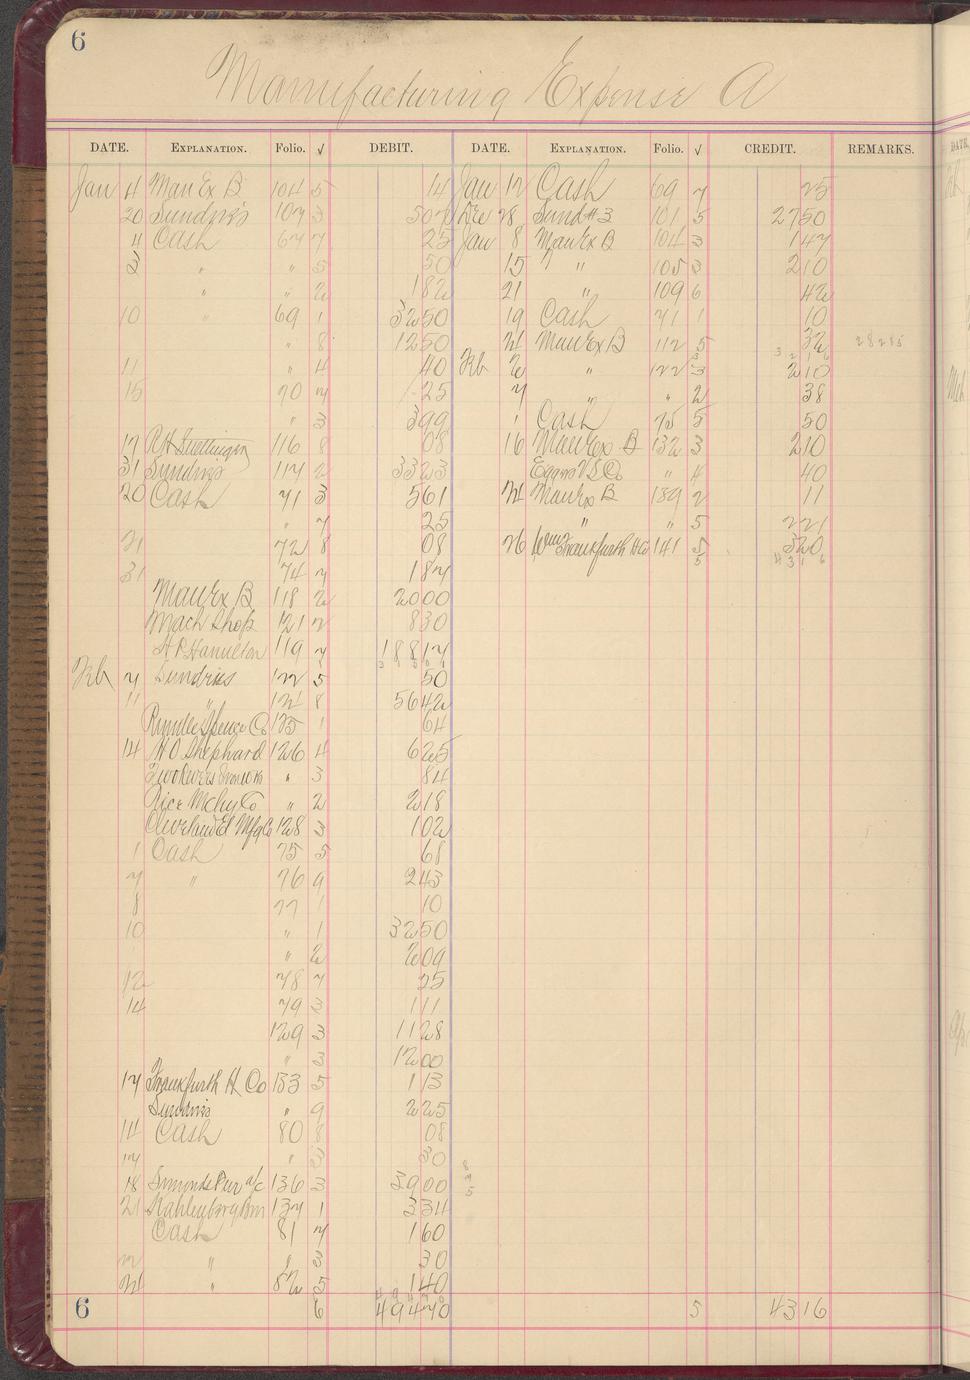 6
Manufacturing Expense A
DATE. EXPLANATION. Folio. √ DEBIT. DATE. EXPLANATION. Folio. √ CREDIT. REMARKS.
Jan 4 Man Ex B 104 5 14 Jan 12 Cash 69 7 25
20 Sundries 107 3 Dec 28 Sund #3 101 5 2750
4 Cash 67 7 25 Jan 8 Man Ex B 104 3 147
3 " " 5 50 15 " " 105 3 210
" " 2 182 21 " 109 6 42
10 " 69 1 3250 19 Cash 71 1 10
" 8 1250 24 Man Ex B 112 5 32 28285
11 " 4 40 Feb 2 " 122 3 210
15 70 7 25 7 " " 2 38
" 3 399 " Cash 75 5 50
17 116 8 08 16 Man Ex B 132 3 210
31 Sundries 117 2 3323 Eggers V S Co " 4 40
20 Cash 71 3 561 24 Man Ex B 139 2 11
" 7 25 " " 5 221
21 72 8 08 26 Frankfurth H Co 141 5 520
31 74 7 187 5 4316
Man Ex B 118 2 2000
Mach Shop 121 2 830
A P Hamilton 119 7 18817
Feb 7 Sundries 122 5 50
11 " 124 8 5642
Rundle Spence Co 125 1 64
14 H O Shephard 126 4 625
Two Rivers Iron Wks " 3 84
Rice Mchy Co " 2 218
Cleveland El Mfg Co 128 3 102
1 Cash 75 5 68
7 " 76 9 243
8 77 1 10
10 " 1 3250
" 2 209
12 78 7 25
14 79 3 111
129 3 1128
" 3 1200
17 Frankfurth H Co 133 5 113
Sundries " 9 225
14 Cash 80 8 08
17 " 3 30
18 Simonds Pur a/c 136 3 3900
21 Kahlenberg Bros 137 1 334
Cash 81 7 160
22 " " 3 30
24 " 82 5 140
6 6 49470 5 4316